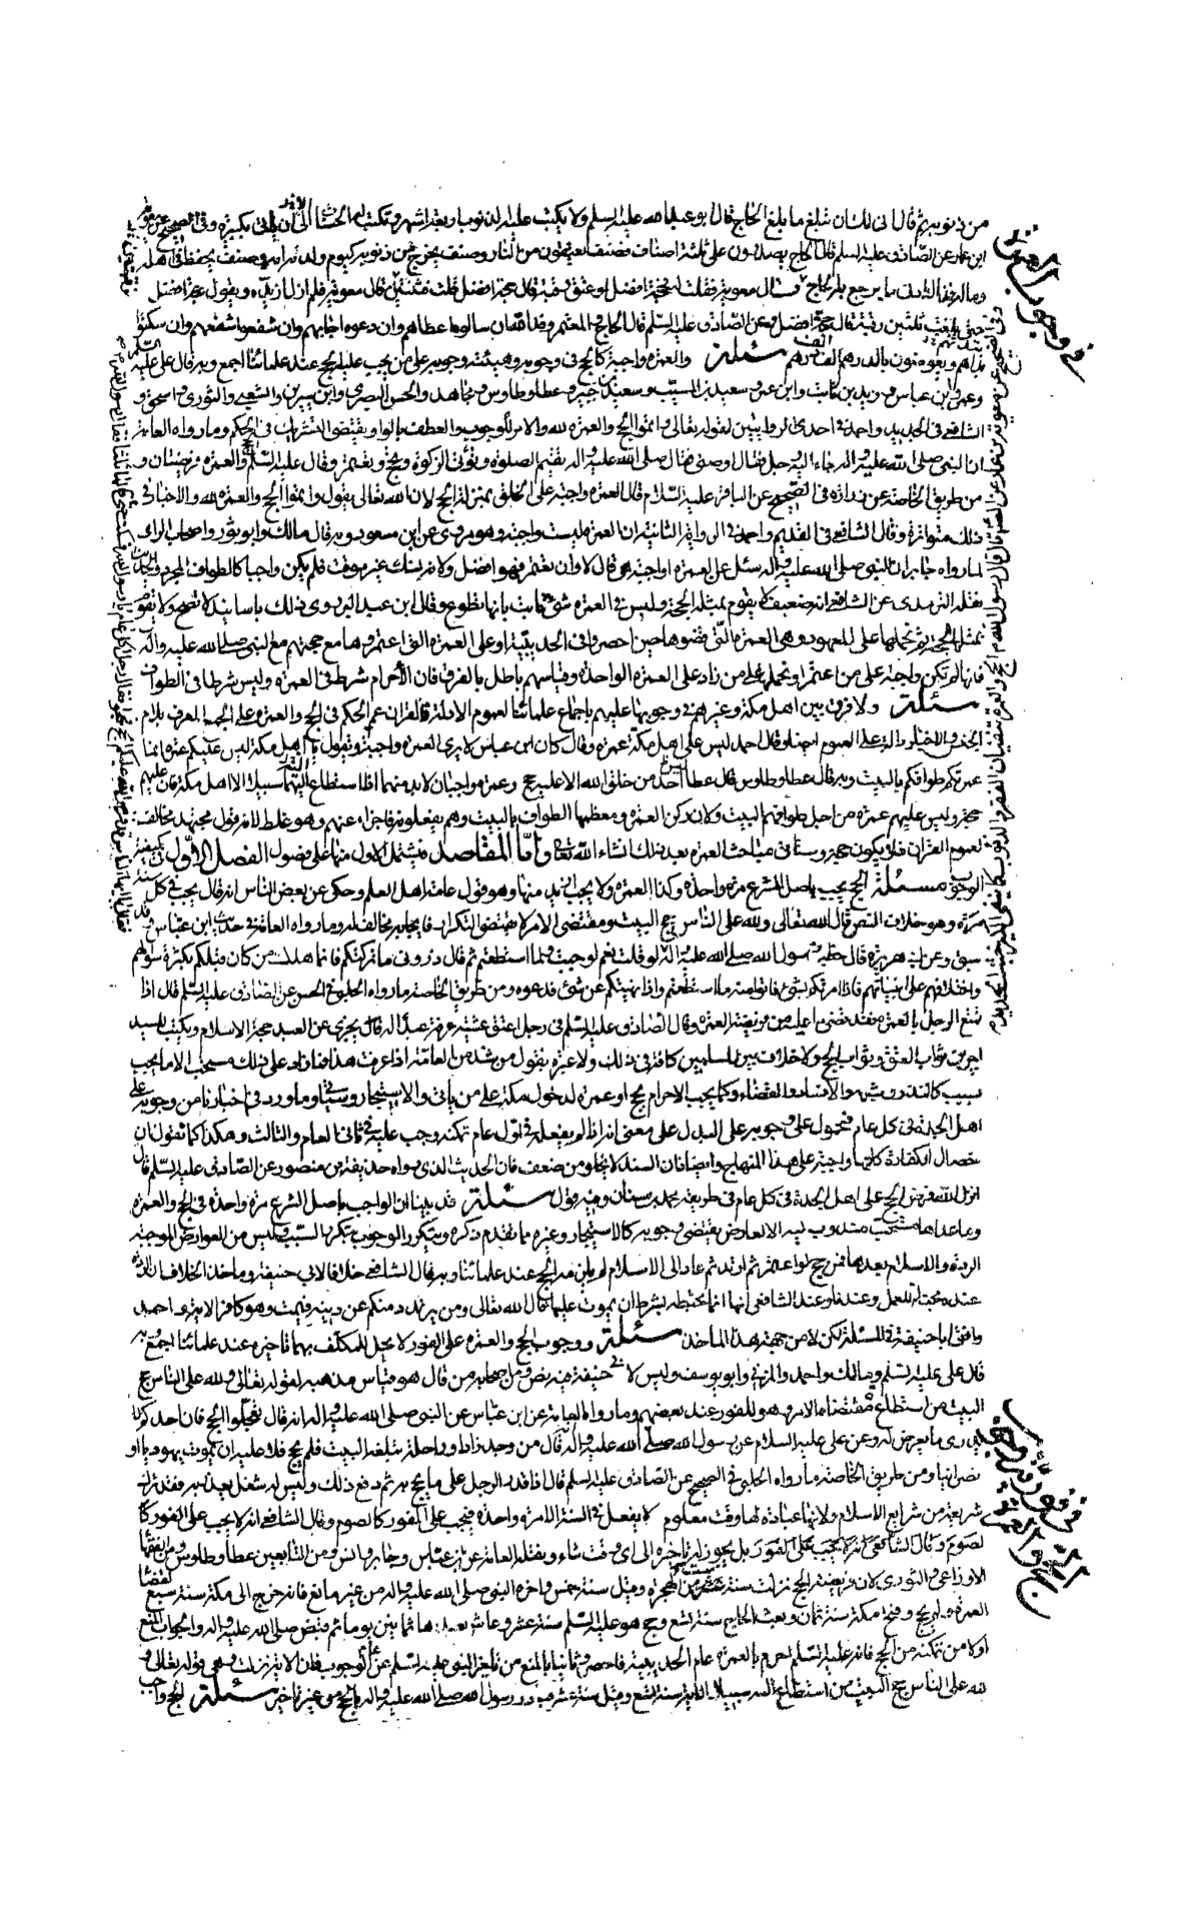 من ذنوبه ثم قال انى لك ان تبلغ ما بلغ الحاج قال ابو عبد الله عليه السلم ولا يكتب عليه الذنوب اربعة اشهر وتكتب له الحسنات الا ان ياتى بكبيرة وفى الصحيح عن معوية
ابن عمار عن الصادق عليه السلم قال الحاج يصدرون على ثلثة اصناف فصنف يعتقون من النار وصنف يخرج من ذنوبه كيوم ولدته امه وصنف يحفظ فى اهله
وماله فذلك ادنى ما يرجع به الحاج وسال معوية فقلت احجة افضل او عتق رقبة قال حجة افضل قلت فثنتين قال معوية فلم ازل ازيده ويقول حجة افضل
حتى بلغت ثلثين رقبة فقال حجة افضل وعن الصادق عليه السلم قال الحاج والمعتمر وفد الله ان سالوه اعطاهم وان دعوه اجابهم وان شفعوا شفعهم وان سكتوا
بداهم ويعوضون بالدرهم الف الف درهم مسئلة والعمرة واجبة كالحج فى وجوبه وهيئته وجوبه على من يجب عليه الحج عند علمائنا اجمع وبه قال على عليه السلم
وعمر وابن عباس وزيد بن ثابت وابن عمر وسعيد بن المسيب وسعيد بن جبير وعطا وطاوس ومجاهد والحسن البصرى وابن سيرين والشعبى والثورى واسحق و
الشافعى فى الجديد واحمد فى احدى الروايتين لقوله تعالى واتموا الحج والعمرة لله والامر للوجوب والعطف بالواو يقتضى التشريك فى الحكم وما رواه العامة
ان النبى صلى الله عليه واله جاءه رجل فقال اوصنى فقال صلى الله عليه واله تقيم الصلوة وتؤتى الزكوة وتحج وتعتمر وقال عليه السلم الحج والعمرة فريضتان و
من طريق الخاصة عن زرارة فى الصحيح عن الباقر عليه السلام قال العمرة واجبة على الخلق بمنزلة الحج لان الله تعالى يقول واتموا الحج والعمرة لله والاخبار فى
ذلك متواترة وقال الشافعى فى القديم واحمد فى الرواية الثانية ان العمرة ليست واجبة وهو مروى عن ابن مسعود وبه قال مالك وابو ثور واصحاب الراى
لما رواه جابر ان النبى صلى الله عليه واله سئل عن العمرة اواجبة هى قال لا وان تعتمر فهو افضل ولانه نسك غير موقت فلم يكن واجبا كالطواف المجرد والحديث
نقله الترمذى عن الشافعى انه ضعيف لا يقوم بمثله الحجة وليس فى العمرة شئ ثابت بانها تطوع وقال ابن عبد البر روى ذلك باسانيد لا تصح ولا يقوم
بمثلها الحجة ثم نحملها على المعهود وهى العمرة التى قضوها حين احصروا فى الحديبية او على العمرة التى اعتمروها مع حجتهم مع النبى صلى الله عليه واله
فانها لم تكن واجبة على من اعتمر او نحمله على من زاد على العمرة الواحدة وقياسهم باطل بالفرق فان الاحرام شرط فى العمرة وليس شرطا فى الطواف
مسئلة ولا فرق بين اهل مكة وغيرهم فى وجوبها عليهم باجماع علمائنا لعموم الادلة فالقران عم الحكم فى الحج والعمرة على الجمع المعرف بلام
الجنس والاخبار دالة على العموم ايضا وقال احمد ليس على اهل مكة عمرة وقال كان ابن عباس لا يرى العمرة واجبة ويقول يا اهل مكة ليس عليكم عمرة انما
عمرتكم طوافكم بالبيت وبه قال عطا وطاوس قال عطا ليس احد من خلق الله الا عليه حج وعمرة واجبان لا بد منهما لمن استطاع اليهما سبيلا الا اهل مكة فان عليهم
حجة وليس عليهم عمرة من اجل طوافهم بالبيت ولان ركن العمرة ومعظمها الطواف بالبيت وهم يفعلونه فاجزاء عنهم وهو غلط لانه قول مجتهد مخالف
لعموم القران فلا يكون حجة وستاتى مباحث العمرة بعد ذلك انشاء الله تعالى واما المقاصد فيشتمل الاول منها على فصول الفصل الاول فى كيفية
الوجوب مسئلة الحج يجب باصل الشرع مرة واحدة وكذا العمرة ولا يجب ازيد منها وهو قول عامة اهل العلم وحكى عن بعض الناس انه قال يجب فى كل سنة
مرة وهو خلاف النص قال الله تعالى ولله على الناس حج البيت ومقتضى الامر لا يقتضى التكرار فايجابه مخالف له وما رواه العامة فى حديث ابن عباس وقد
سبق وعن ابى هريرة قال خطبنا رسول الله صلى الله عليه واله لو قلت نعم لوجبت ولما استطعتم ثم قال ذرونى ما تركتكم فانما هلك من كان قبلكم بكثرة سؤالهم
واختلافهم على انبيائهم فاذا امرتكم بشئ فاتوا منه ما استطعتم واذا نهيتكم عن شئ فدعوه ومن طريق الخاصة ما رواه الحلبى فى الحسن عن الصادق عليه السلم قال اذا
تمتع الرجل بالعمرة فقد قضى ما عليه من فريضة العمرة وقال الصادق عليه السلم فى رجل اعتق عشية عرفة عبدا له قال يجزى عن العبد حجة الاسلام ويكتب للسيد
اجرين ثواب العتق وثواب الحج ولا خلاف بين المسلمين كافة فى ذلك ولا عبرة بقول من شذ من العامة اذا عرفت هذا فما زاد على ذلك مستحب الا ما يجب
بسبب كالنذر وشبهه والافساد والقضاء وكما يجب الاحرام بحج او عمرة لدخول مكة على من ياتى والاستيجار وسياتى وما ورد فى اخبارنا من وجوبه على
اهل الجدة فى كل عام فمحمول على وجوبه على البدل على معنى انه اذا لم يفعله فى اول عام تمكنه وجب عليه فى ثانى العام والثالث وهكذا كما تقول ان
خصال الكفارة كلها واجبة على هذا المنهاج وايضا فان السند لا يخلو من ضعف فان الحديث الذى رواه حذيفة بن منصور عن الصادق عليه السلم قال
انزل الله فرض الحج على اهل الجدة فى كل عام فى طريقه محمد بن سنان وفيه قول مسئلة قد بينا ان الواجب باصل الشرع مرة واحدة فى الحج والعمرة
وما عداها مستحب مندوب اليه الا لعارض يقتضى وجوبه كالاستيجار وغيره مما تقدم ذكره ويتكرر الوجوب بتكرر السبب وليس من العوارض الموجبة
الردة والاسلام بعدها فمن حج او اعتمر ثم ارتد ثم عاد الى الاسلام لم يلزمه الحج عند علمائنا وبه قال الشافعى خلافا لابى حنيفة وماخذ الخلاف ان الردة
عنده محبطة للعمل وعندنا وعند الشافعى انها انما تحبطه بشرط ان يموت عليها قال الله تعالى ومن يرتدد منكم عن دينه فيمت وهو كافر الاية واحمد
وافق ابا حنيفة فى المسئلة لكن لا من جهة هذا الماخذ مسئلة ووجوب الحج والعمرة على الفور لا يحل للمكلف بهما تاخيره عند علمائنا اجمع وبه
قال على عليه السلم ومالك واحمد والمزنى وابو يوسف وليس لابى حنيفة فيه نص ومن اصحابه من قال هو قياس مذهبه لقوله تعالى ولله على الناس حج
البيت من استطاع مقتضاه الامر وهو للفور عند بعضهم وما رواه العامة عن ابن عباس عن النبى صلى الله عليه واله انه قال تعجلوا الحج فان احدكم لا
يدرى ما يعرض له وعن على عليه السلام عن رسول الله صلى الله عليه واله قال من وجد زادا وراحلة تبلغه البيت فلم يحج فلا عليه ان يموت يهوديا او
نصرانيا ومن طريق الخاصة ما رواه الحلبى فى الصحيح عن الصادق عليه السلم قال اذا قدر الرجل على ما يحج به ثم دفع ذلك وليس له شغل يعذر به فقد ترك
شريعة من شرايع الاسلام ولانها عبادة لها وقت معلوم لا يفعل فى السنة الا مرة واحدة فيجب على الفور كالصوم وقال الشافعى انه لا يجب على الفور كا
لصوم وقال الشافعى انه لا يجب على الفور بل يجوز له تاخيره الى اى وقت شاء ونقله العامة عن ابن عباس وجابر وانس ومن التابعين عطا وطاوس ومن الفقهاء
الاوزاعى والثورى لان فريضة الحج نزلت سنة ست من الهجرة وقيل سنة خمس واخره النبى صلى الله عليه واله من غير مانع فانه خرج الى مكة سنة سبع لقضاء
العمرة ولم يحج وفتح مكة سنة ثمان وبعث الحاج سنة تسع وحج هو عليه السلم سنة عشر وعاش بعدها ثمانين يوما ثم قبض صلى الله عليه واله والجواب المنع
اولا من تمكنه من الحج فانه عليه السلم احرم بالعمرة عام الحديبية فاحصر وثانيا بالمنع من تاخير النبى عليه السلم عن عام الوجوب فان الاية نزلت وهى قوله تعالى و
لله على الناس حج البيت من استطاع اليه سبيلا الاية سنة تسع وقيل سنة عشر فبادر رسول الله صلى الله عليه واله بالحج من غير تاخير مسئلة الحج واجب
فى وجوب العمرة